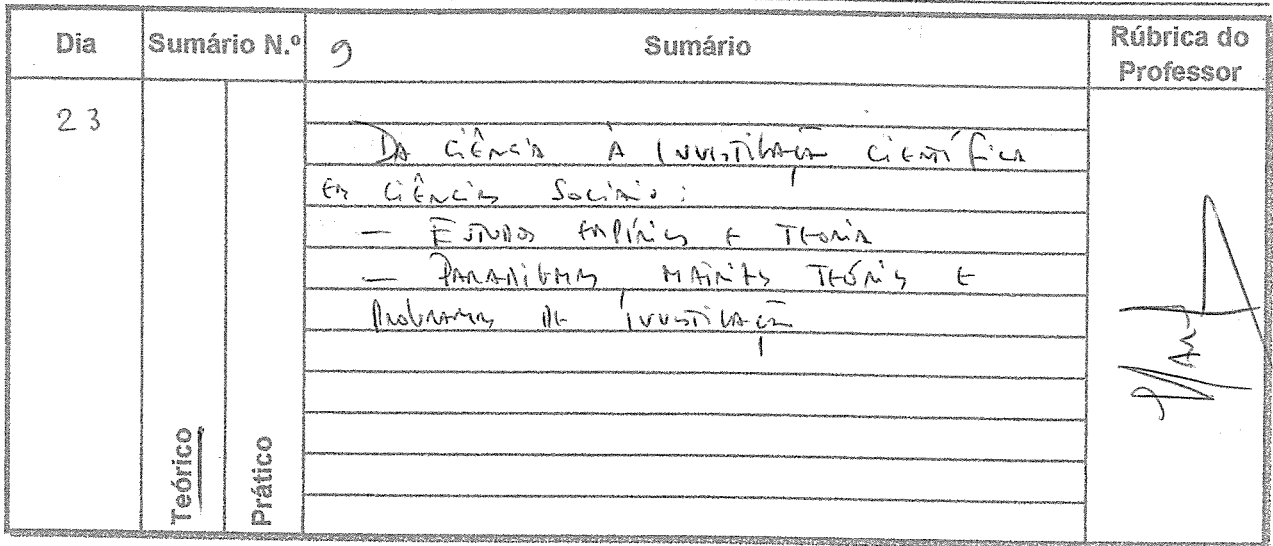 Dia Sumário N.º 9 Sumário Rúbrica do Professor
23
Da Ciência à Investigação Científica
em Ciências Sociais:
— Estudos empíricos e Teoria
— Paradigmas Matrizes Teóricas e
Programas de Investigação
Teórico
Prático